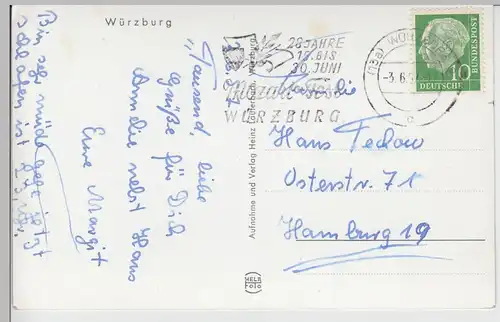 Würzburg
"Tausend, liebe
Grüße für Dich
und die nebst Hans
Eure Margit
Bin sehr müde geh jetzt
schlafen ist 23 Uhr.
28 JAHRE
BIS
30. JUNI
Mozart-Fest
WÜRZBURG
(13a) WÜRZBURG
-3.6.
c
10
DEUTSCHE
BUNDESPOST
Aufnahme und Verlag Heinz Würzburg
Familie
Hans Tedow
Osterstr. 71
Hamburg 19
HELA
FOTO